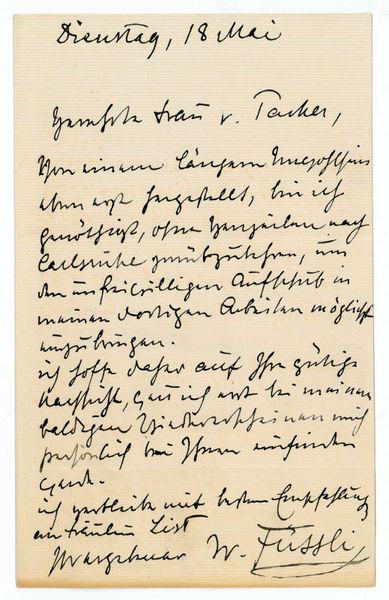 Dienstag, 18 Mai
Verehrte Frau v. Tacher,
Von einem längern Unwohlsein
eben erst hergestellt, bin ich
genöthigt, ohne Verweilen nach
Carlsruhe zurückzukehren, um
den unfreiwilligen Aufschub in
meinen dortigen Arbeiten möglichst
einzubringen.
ich hoffe daher auf Ihre gütige
Nachsicht, wenn ich erst bei meinem
baldigen Wiedererscheinen mich
persönlich bei Ihnen einfinden
werde.
ich verbleibe mit besten Empfehlung
an Fräulein List
Ihr ergebener W. Füssli